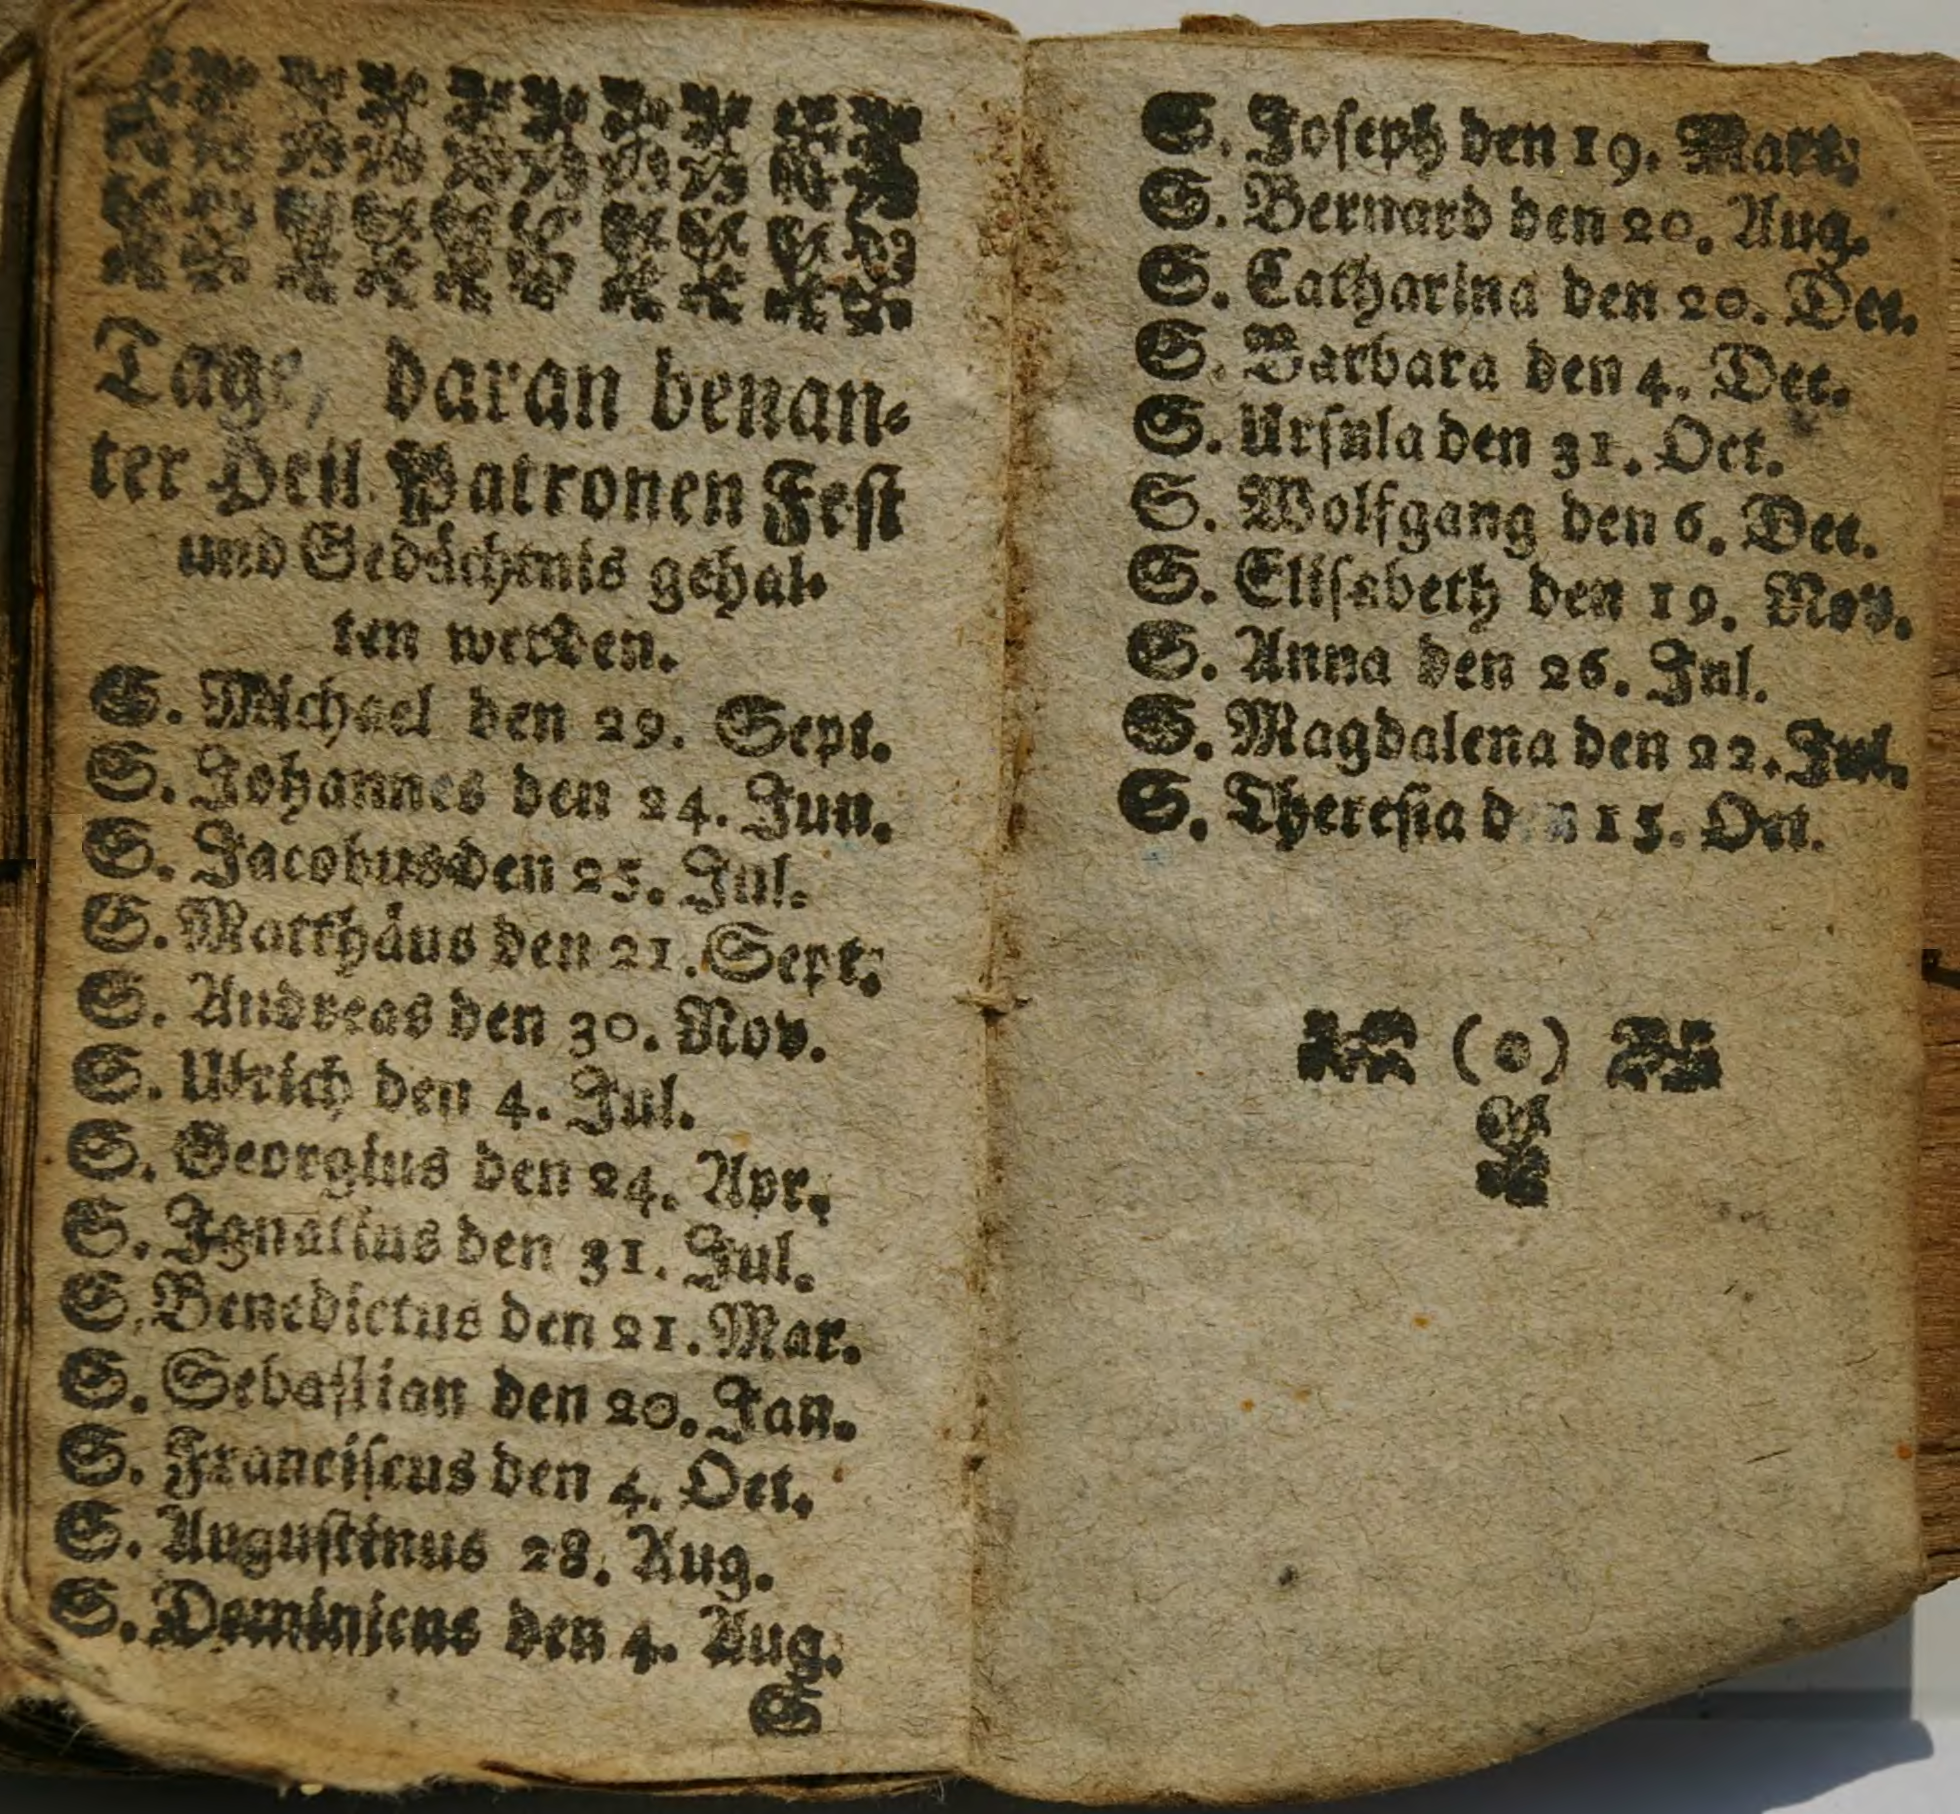 Tage, daran benan⸗
ter Heil. Patronen Feſt
und Gedächtnis gehal⸗
ten werden.
S. Michael den 29. Sept.
S. Johannes den 24. Jun.
S. Jacobus den 25. Jul.
S. Matthäus den 21. Sept.
S. Andreas den 30. Nov.
S. Ulrich den 4. Jul.
S. Georgius den 24. Apr.
S. Ignatius den 31. Jul.
S. Benedictus den 21. Mar.
S. Sebaſtian den 20. Jan.
S. Franciſcus den 4. Oct.
S. Auguſtinus 28. Aug.
S. Dominicus den 4. Aug.
S
S. Joſeph den 19. Mart.
S. Bernard den 20. Aug.
S. Catharina den 20. Dec.
S. Barbara den 4. Dec.
S. Urſula den 31. Oct.
S. Wolfgang den 6. Dec.
S. Eliſabeth den 19. Nov.
S. Anna den 26. Jul.
S. Magdalena den 22. Jul.
S. Thereſia den 15. Oct.
(o)